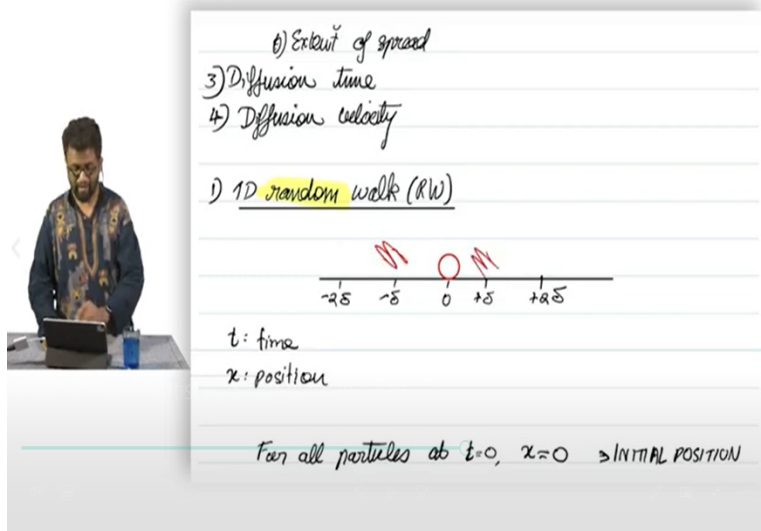 b) Extent of spread
3) Diffusion time
4) Diffusion velocity
1) 1D random walk (RW)
-2δ -δ 0 +δ +2δ
t: time
x: position
For all particles at t=0, x=0 → INITIAL POSITION